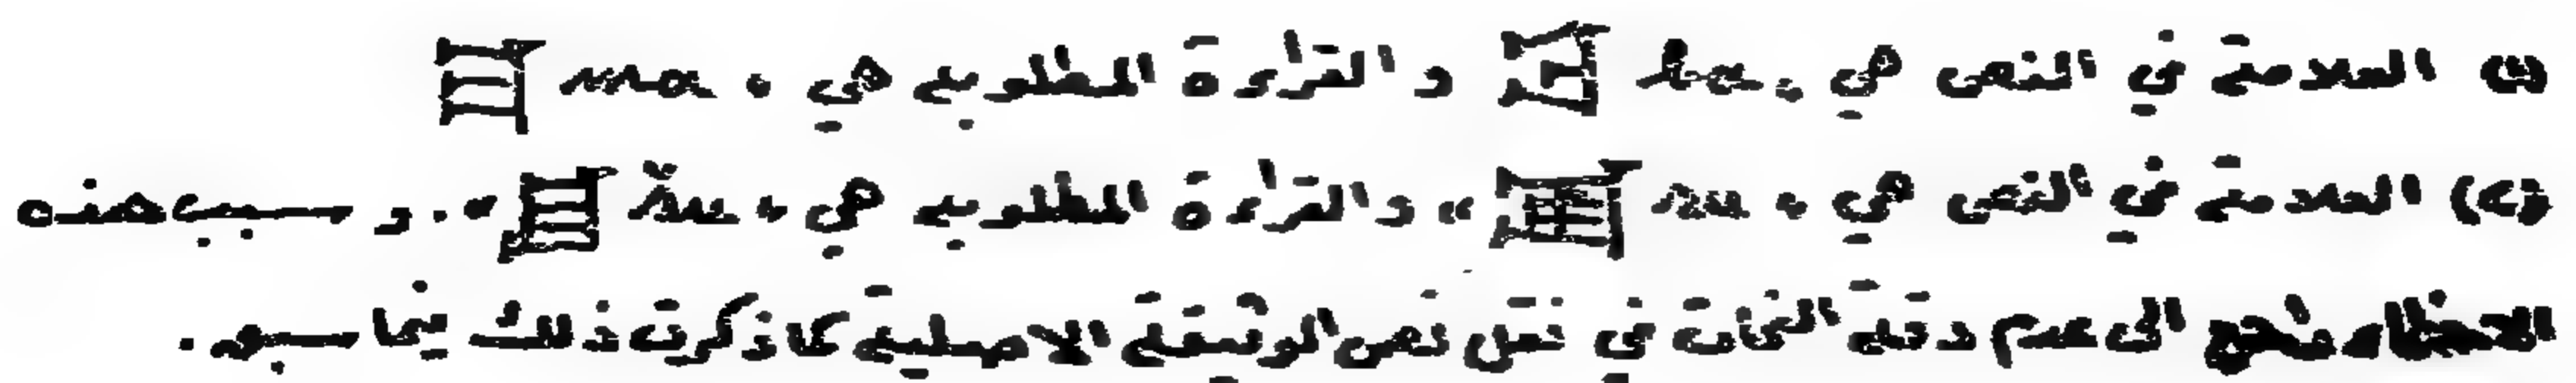 (١) العلامة في النص هي « و القراءة المطلوبة هي «
(٢) العلامة في النص هي « » والقراءة المطلوبة هي « » . و سبب هذه
الاخطاء واضح الى عدم دقة النحات في نقل نص الوثيقة الاصلية كما ذكرت ذلك فيما سبق .